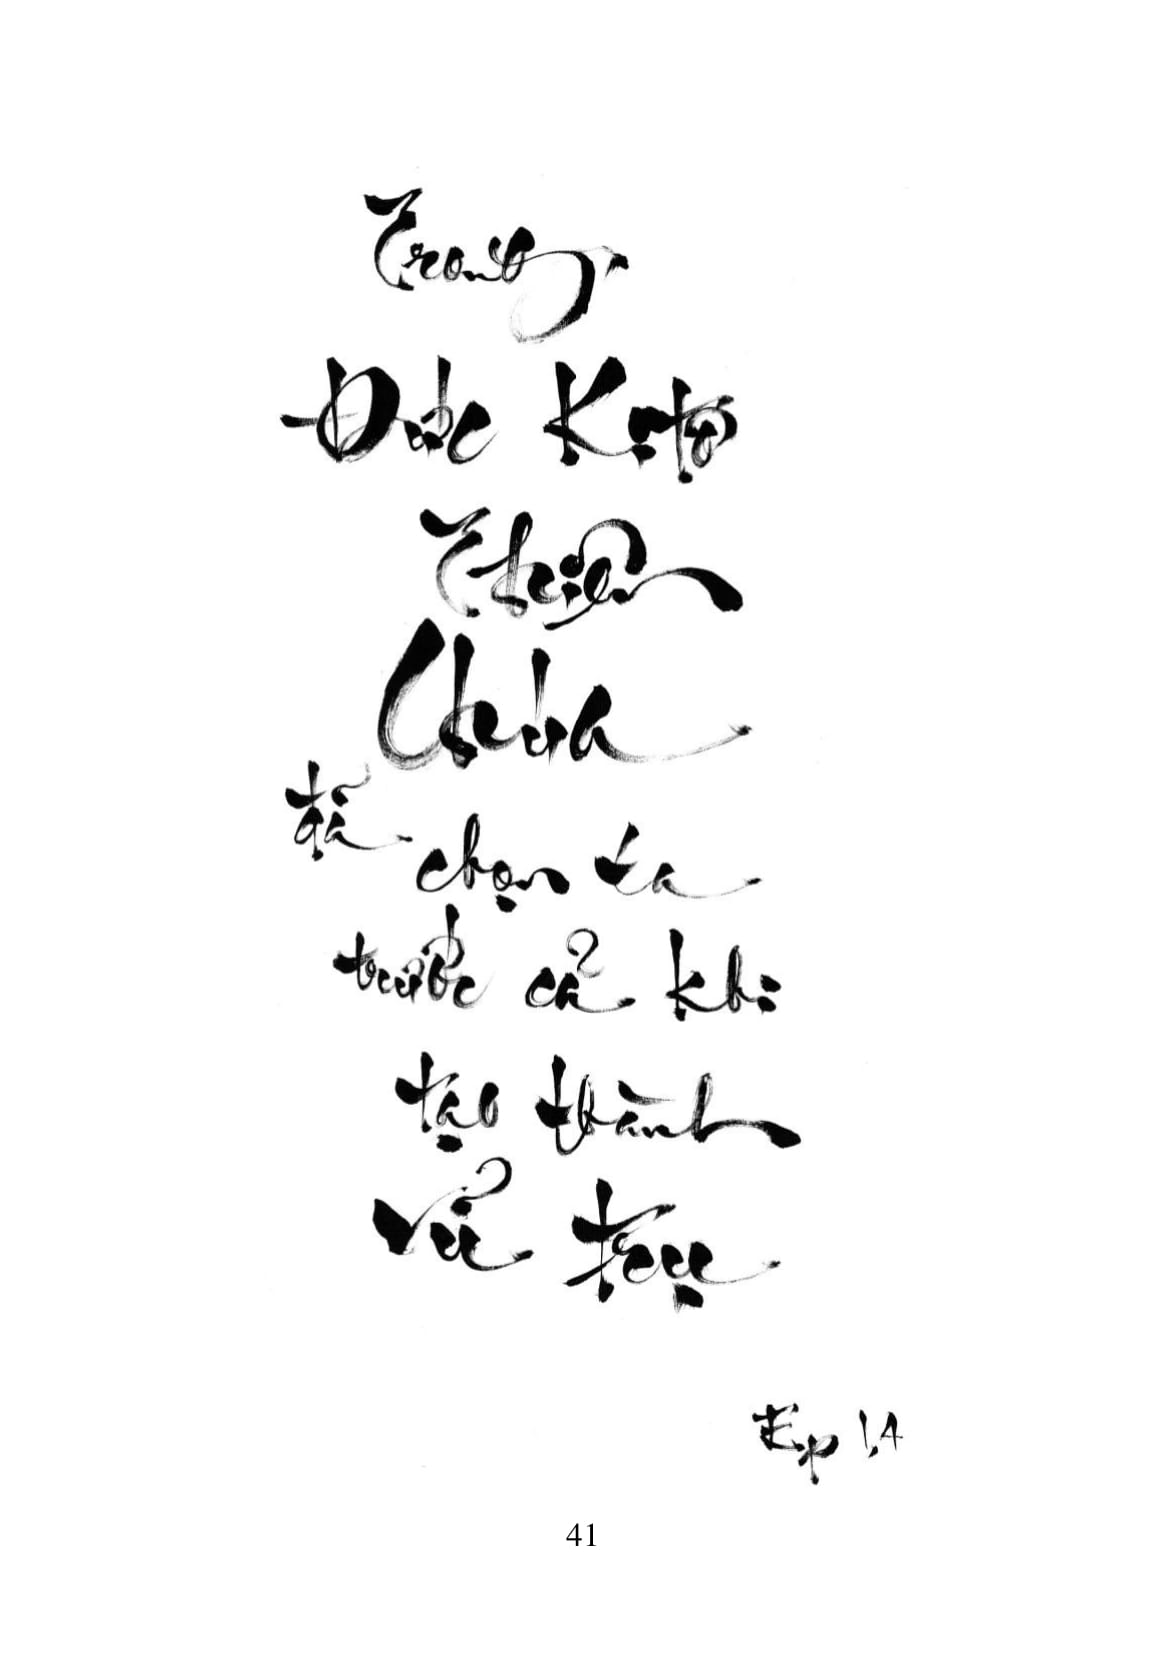 Trong
Đức Kitô
Thiên
Chúa
đã
chọn ta
trước cả khi
tạo thành
vủ trụ
Ep 1,4
41